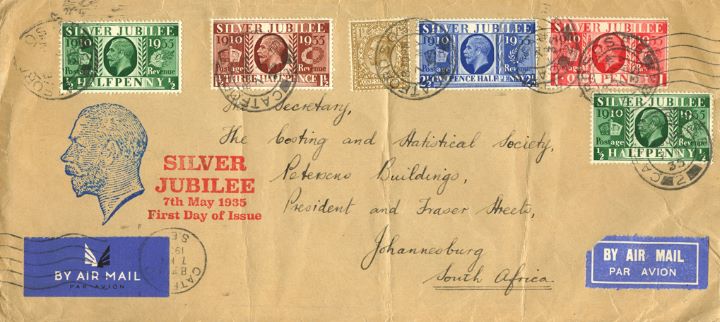 SILVER JUBILEE
1910 1935
Postage Revenue
½ HALFPENNY ½
SILVER JUBILEE
1910 1935
SILVER JUBILEE
1910 1935
Postage Revenue
2½ PENCE HALFPENNY 2½
SILVER JUBILEE
1910 1935
SILVER JUBILEE
1910 1935
Postage Revenue
½ HALFPENNY ½
The Secretary,
The Costing and Statistical Society,
Petersens Buildings,
President and Fraser Streets,
Johannesburg
South Africa.
SILVER
JUBILEE
7th May 1935
First Day of Issue
BY AIR MAIL
PAR AVION
BY AIR MAIL
PAR AVION